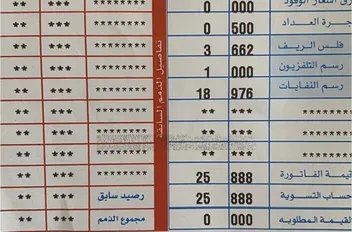 رق اسعار الوقود 0 000 ******** *** **
جرة العداد 0 500 ******** *** **
فلس الريف 3 662 ******** *** **
رسم التلفزيون 1 000 ******** *** **
رسم النفايات 18 976 ******** *** **
*** ** ******** *** **
*** ** ******** *** **
*** ** ******** *** **
قيمة الفاتورة 25 888 ******** *** **
حساب التسوية 25 888 رصيد سابق *** **
القيمة المطلوبه 0 000 مجموع الذمم *** **
تفاصيل الذمم السابقة